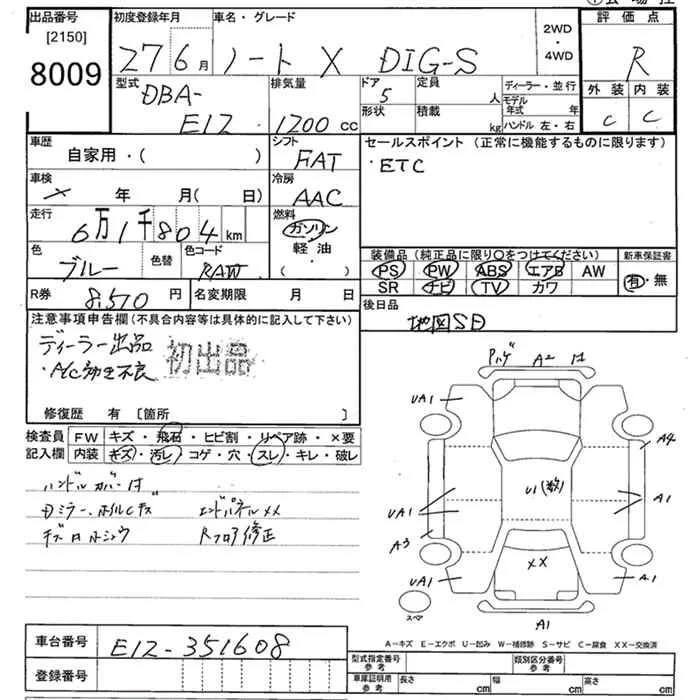 出品番号
[2150]
8009
初度登録年月
27 6月
車名・グレード
ノート X DIG-S
2WD
・
4WD
評価点
R
外装 内装
C C
型式
DBA-
E12
排気量
1200 cc
ドア
5
形状
定員
人
積載
kg
ディーラー・並行
モデル
年式 年
ハンドル 左・右
車歴
自家用・( )
シフト
FAT
セールスポイント (正常に機能するものに限ります)
・ETC
車検
× 年 月( 日)
冷房
AAC
走行
6万1千804 km
燃料
ガソリン
軽油
( ・ )
色
ブルー
色替
色コード
RAW
装備品 (純正品に限り〇をつけてください)
PS PW ABS エアB AW
SR ナビ TV カワ
新車保証書
有・無
R券 8,510 円
名変期限 月 日
後日品
地図SD
注意事項申告欄 (不具合内容等は具体的に記入して下さい)
ディーラー出品
初出品
・A/C効き不良
修復歴 有 [箇所 ]
検査員
記入欄
FW キズ・飛石・ヒビ割・リペア跡・×要
内装 キズ・汚レ・コゲ・穴・スレ・キレ・破レ
ハンドルカバー付
Dミラー、ホイルCキズ
エンドパネル××
Rフロア修正
A2
UA1
A4
U1(数)
UA1
A1
A3
××
UA1
A1
スペア
A1
A-キズ E-エクボ U-凹み W-補修跡 S-サビ C-腐食 XX-交換済
車台番号
E12-351608
登録番号
型式指定番号
参考
類別区分番号
参考
車庫証明用
参考
長さ cm
幅 cm
高さ cm